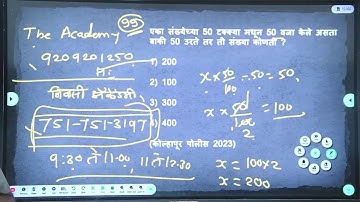 The Academy
9209201250
751-751-3197
9:30 ते 11:00, 11 ते 12:30
99
एका संख्येच्या 50 टक्क्या मधून 50 वजा केले असता
बाकी 50 उरते तर ती संख्या कोणती ?
1) 200
2) 100
3) 300
4) 400
(कोल्हापूर पोलीस 2023)
x × 50/100 - 50 = 50
= 100
2
x = 100×2
x = 200